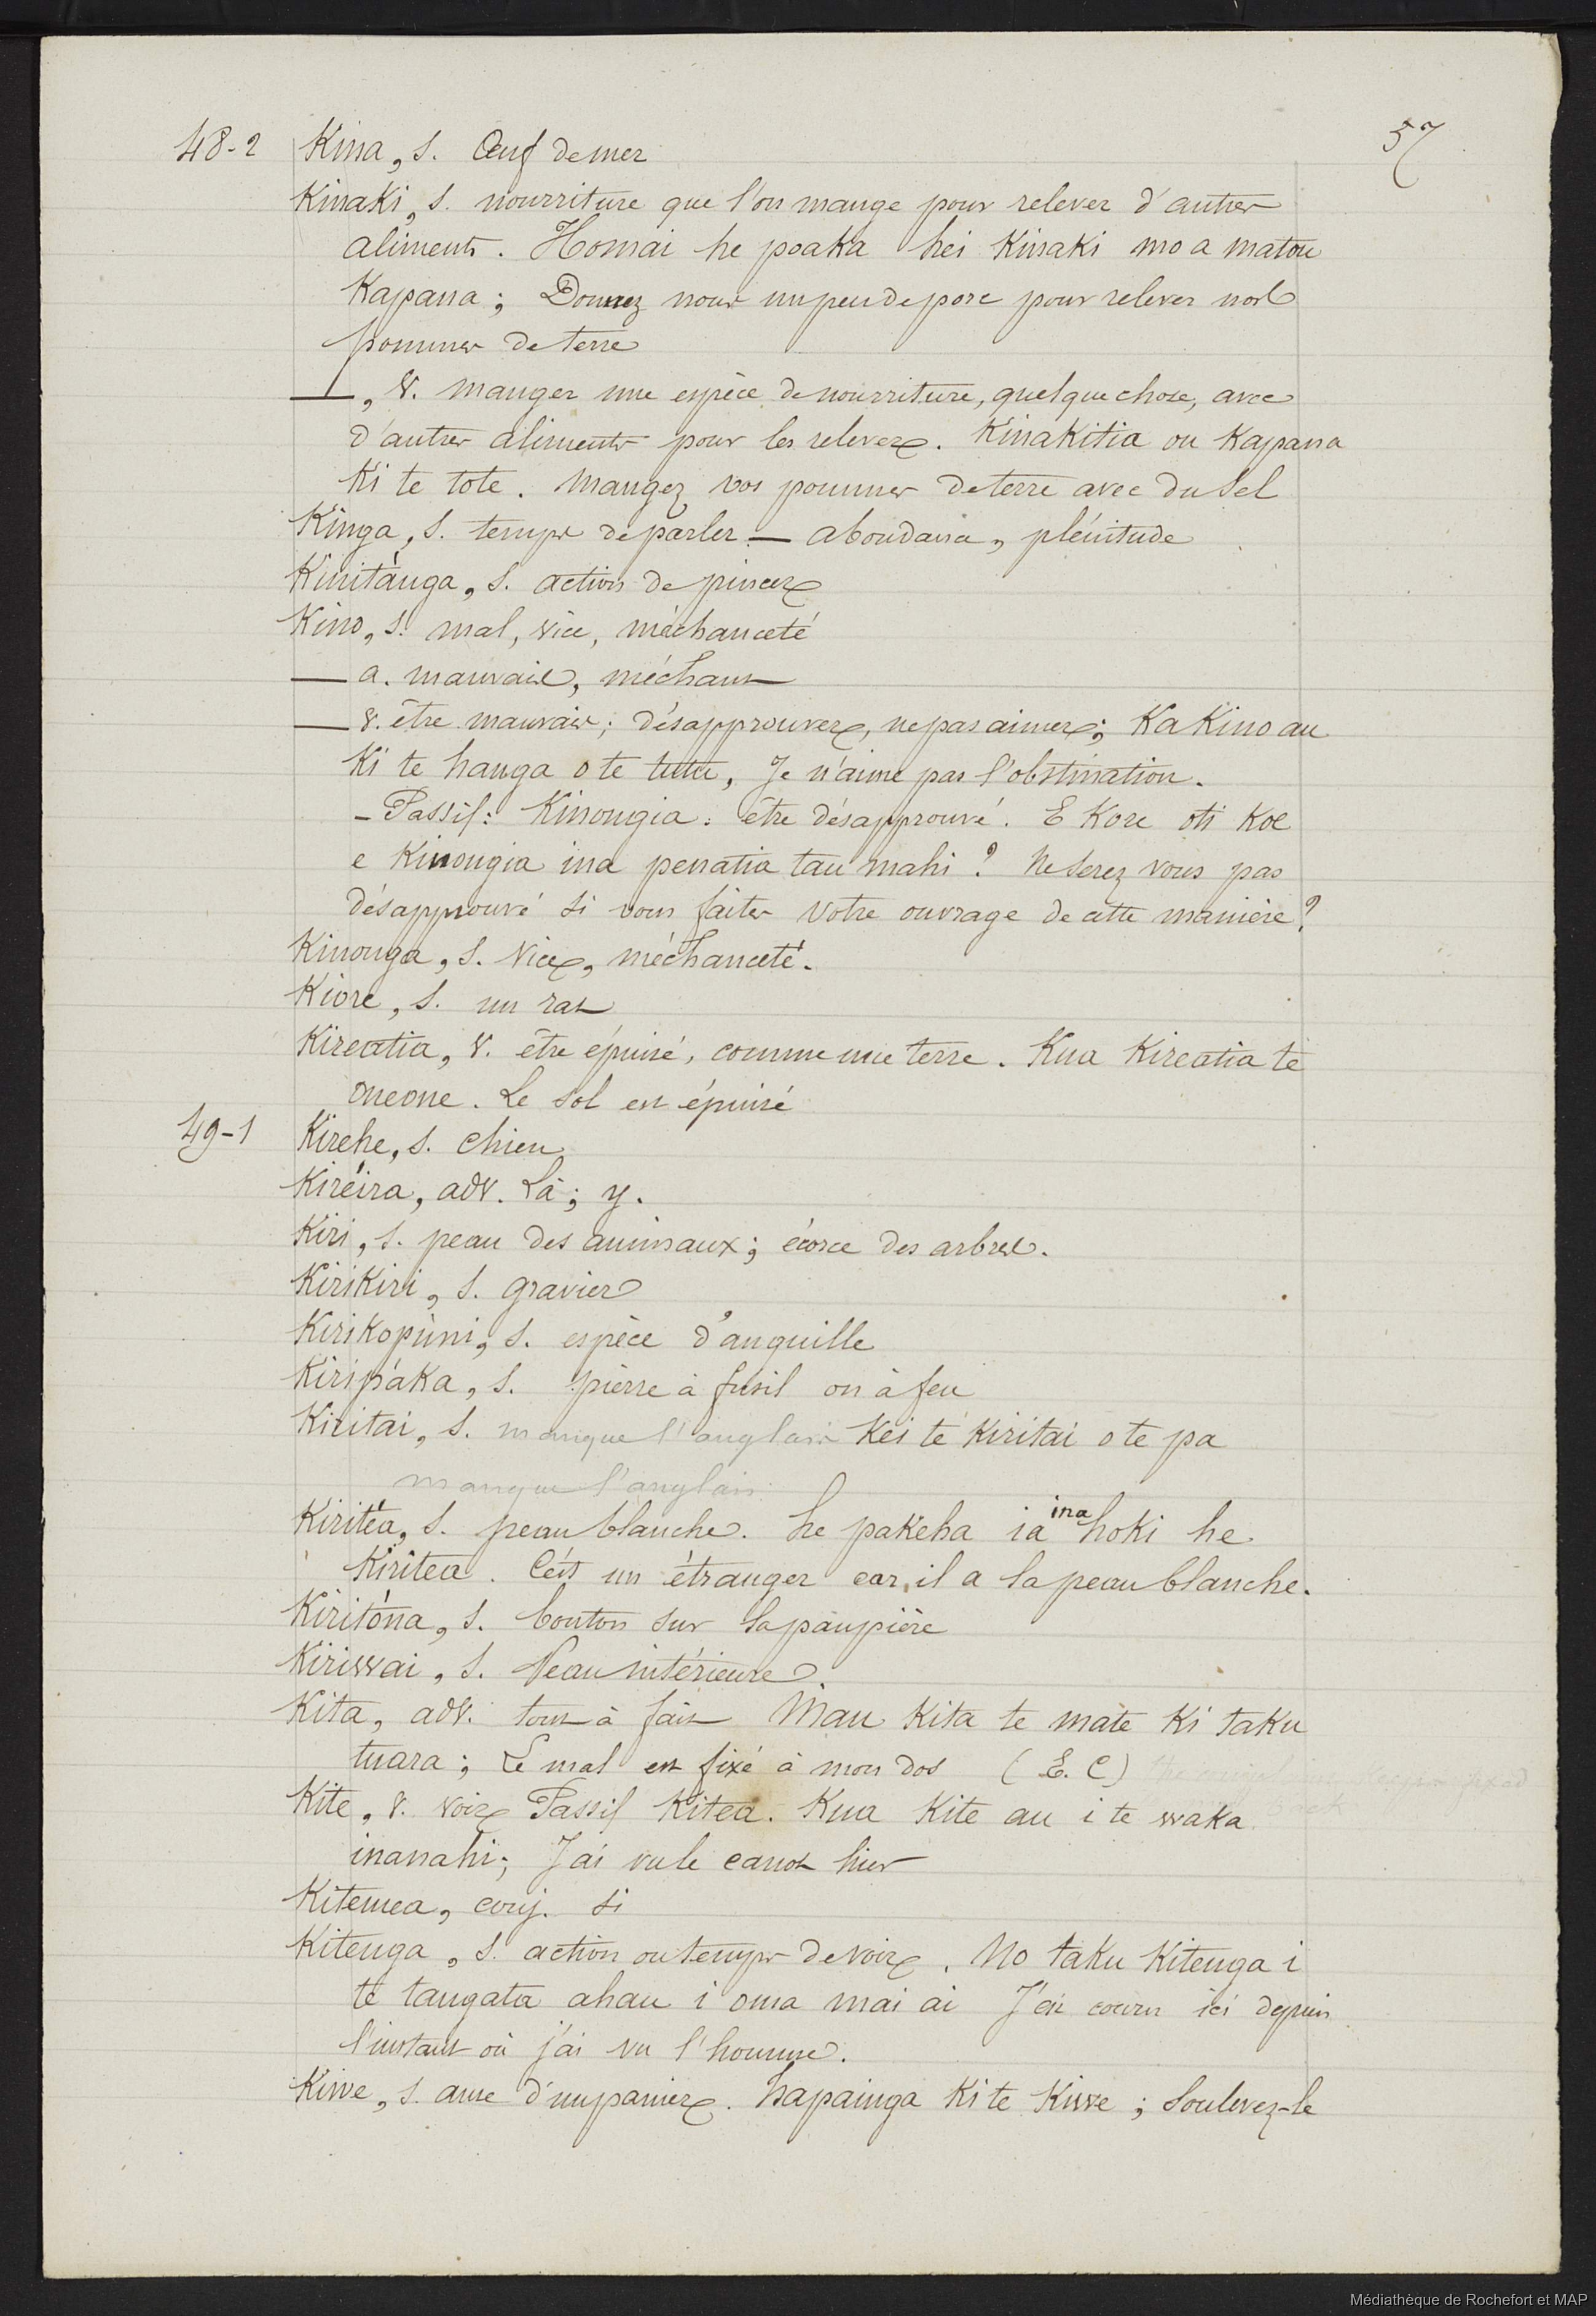 57
48-2 Kina, s. Œuf de mer
Kinaki, s. nourriture que l'on mange pour relever d'autres
aliments. Homai he poaka hei Kinaki mo a matou
Kapana; Donnez nous un peu de porc pour relever nos
pommes de terre
—, v. manger une espèce de nourriture, quelque chose, avec
d'autres aliments pour les relever. Kinakitia ou Kapana
Ki te tote. Mangez vos pommes de terre avec du sel
Kinga, s. temps de parler — abondana, plénitude
Kinitánga, s. action de pincer
Kino, s. mal, vice, méchanceté
— a. mauvais, méchant
— v. être mauvais; désapprouver, ne pas aimer; Ka Kino au
Ki te hanga o te tutu, Je n'aime pas l'obstination.
- Passif: Kinongia: être désapprouvé. E Kore oti Koe
e Kinongia ina penatia tau mahi? Ne serez vous pas
désapprouvé si vous faites votre ouvrage de cette manière?
Kinonga, s. Vice, méchanceté.
Kiore, s. un rat
Kireatia, v. être épuisé, comme une terre. Kua Kireatia te
oneone. Le sol est épuisé
49-1 Kirehe, s. chien
Kiréira, adv. Là; y.
Kiri, s. peau des animaux; écorce des arbres.
Kirikiri, s. gravier
Kirikopùni, s. espèce d'anguille
Kiripáka, s. pierre à fusil ou à feu
Kiritai, s. manque l'anglais Kei te Kiritai o te pa
manque l'anglais
Kiritéa, s. peau blanche. he pakeha ia ina hoki he
Kiritea. C'est un étranger car il a la peau blanche.
Kiritóna, s. bouton sur la paupière
Kiriwai, s. Peau intérieure.
Kita, adv. tout à fait Mau Kita te mate Ki taku
tuara; Le mal est fixé à mon dos (E. C) fixed
Kite, v. voir Passif Kitea. Kua Kite au i te waka
inanahi; J'ai vu le canot hier
Kitemea, conj. si
Kitenga, s. action ou temps de voir. No taku Kitenga i
te tangata ahau i oma mai ai J'ai couru ici depuis
l'instant où j'ai vu l'homme.
Kiwe, s. anse d'un panier. hapainga Ki te Kiwe; soulevez-le
Médiathèque de Rochefort et MAP